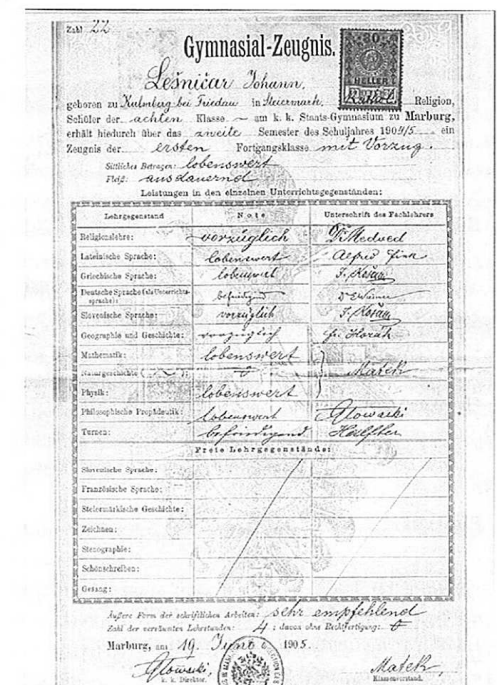 Zahl 22
Gymnasial-Zeugnis.
80
HELLER
Lešničar Johann,
geboren zu Kulmberg bei Friedau in Steiermark, Religion,
Schüler der achten Klasse am k. k. Staats-Gymnasium zu Marburg,
erhält hiedurch über das zweite Semester des Schuljahres 1904/5 ein
Zeugnis der ersten Fortgangsklasse mit Vorzug.
Sittliches Betragen: lobenswert
Fleiß: ausdauernd
Leistungen in den einzelnen Unterrichtsgegenständen:
Lehrgegenstand Note Unterschrift des Fachlehrers
Religionslehre: vorzüglich Dr Medved
Lateinische Sprache: lobenswert Alfred Fink
Griechische Sprache: lobenswert
Deutsche Sprache (als Unterrichtssprache): befriedigend
Slovenische Sprache: vorzüglich
Geographie und Geschichte: vorzüglich Fr. Horák
Mathematik: lobenswert
Naturgeschichte Matek
Physik: lobenswert
Philosophische Propädeutik: lobenswert Glowacki
Turnen: befriedigend Halfter
Freie Lehrgegenstände:
Slovenische Sprache:
Französische Sprache:
Steiermärkische Geschichte:
Zeichnen:
Stenographie:
Schönschreiben:
Gesang:
Äußere Form der schriftlichen Arbeiten: sehr empfehlend
Zahl der versäumten Lehrstunden: 4 ; davon ohne Rechtfertigung: 0
Marburg, am 19. 1905.
Glowacki, Matek,
k. k. Direktor. Klassenvorstand.